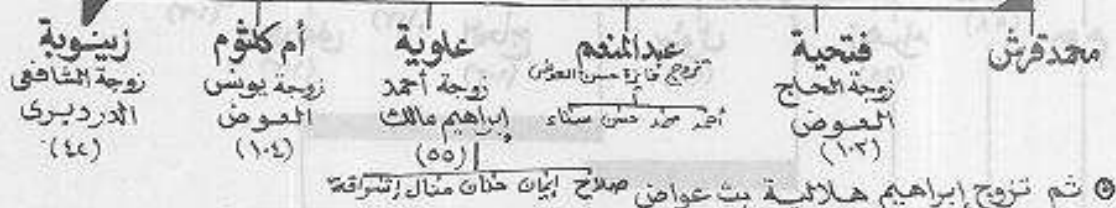 محمد قرش
فتحية
زوجة الحاج
العوض
(١٠٢)
عبد المنعم
تزوج فايزة حسن العوض
أحمد محمد حسن سناء
علوية
زوجة أحمد
إبراهيم مالك
(٥٥)
صلاح إيمان حنان منال إشراقة
أم كلثوم
زوجة يونس
العوض
(١٠٤)
زينوبة
زوجة الشافعى
الدرديرى
(٤٢)
ثم تزوج إبراهيم هلالية بت عواض